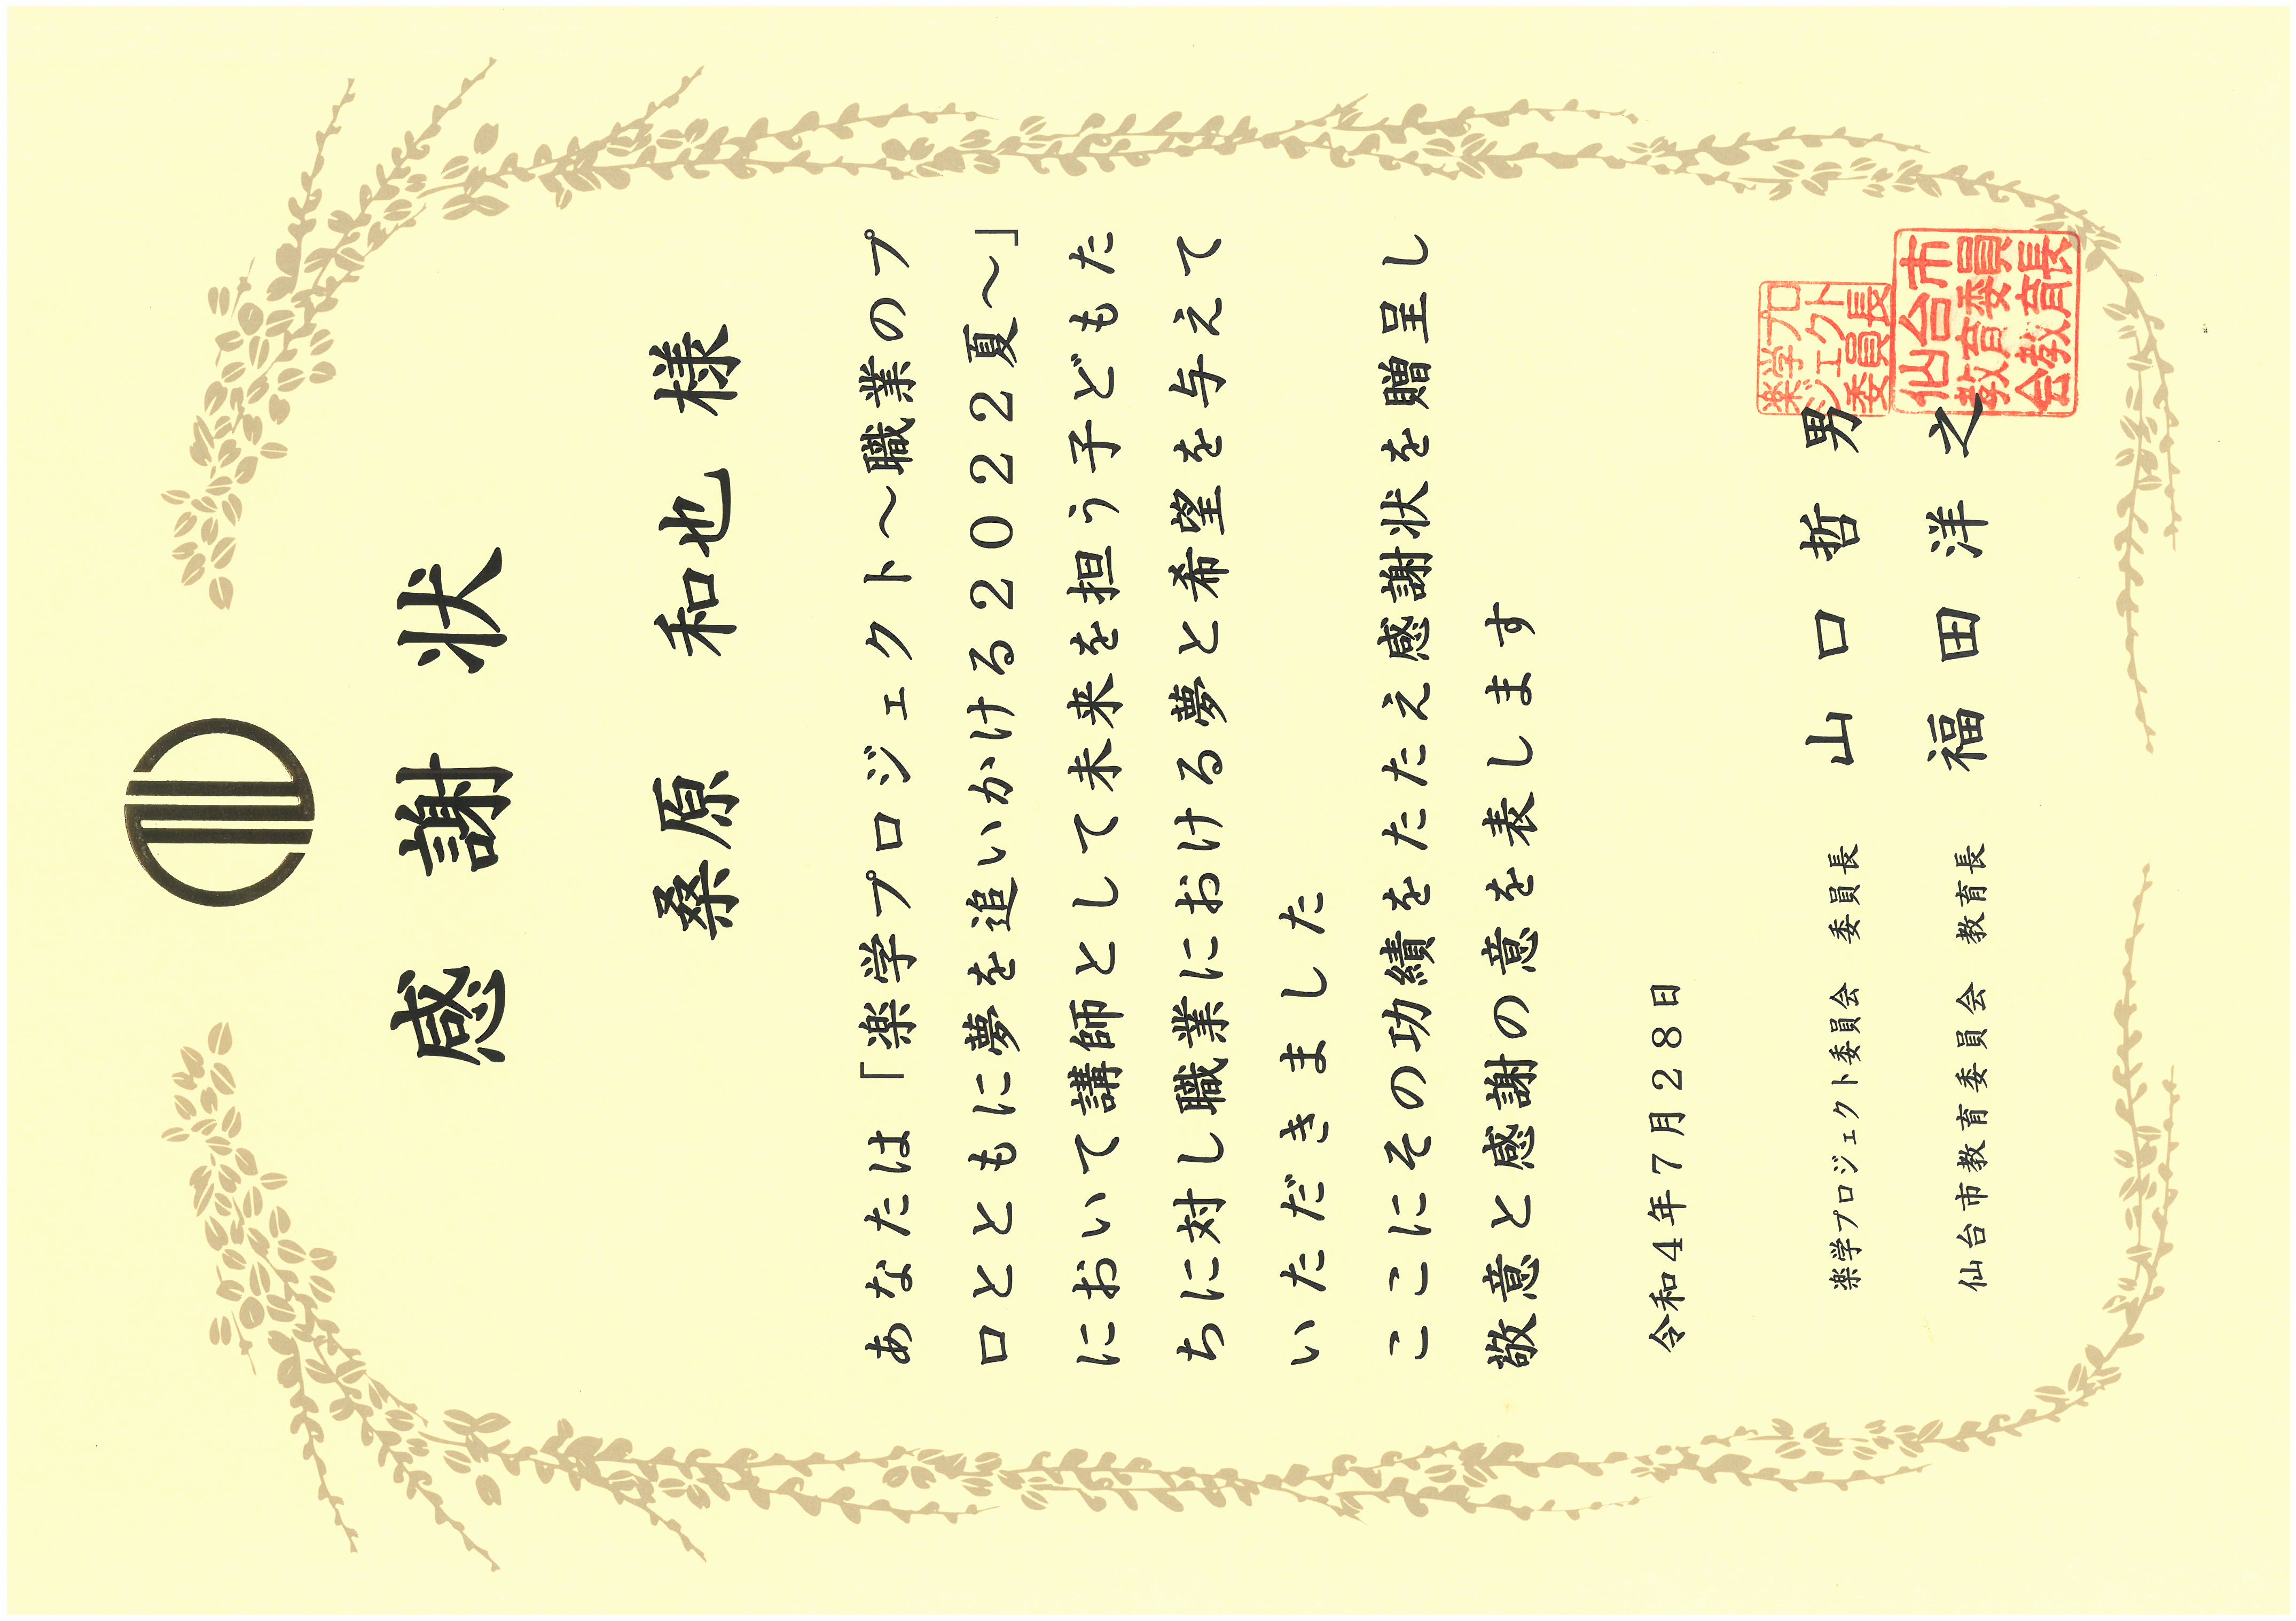 感謝状
桑原 和也 様
あなたは「楽学プロジェクト~職業のプ
ロとともに夢を追いかける2022夏~」
において講師として未来を担う子どもた
ちに対し職業における夢と希望を与えて
いただきました
ここにその功績をたたえ感謝状を贈呈し
敬意と感謝の意を表します
令和4年7月28日
楽学プロジェクト委員会 委員長 山口哲男
仙台市教育委員会 教育長 福田洋之
楽学プロ
ジェクト
委員長
仙台市
教育委員
会教育長